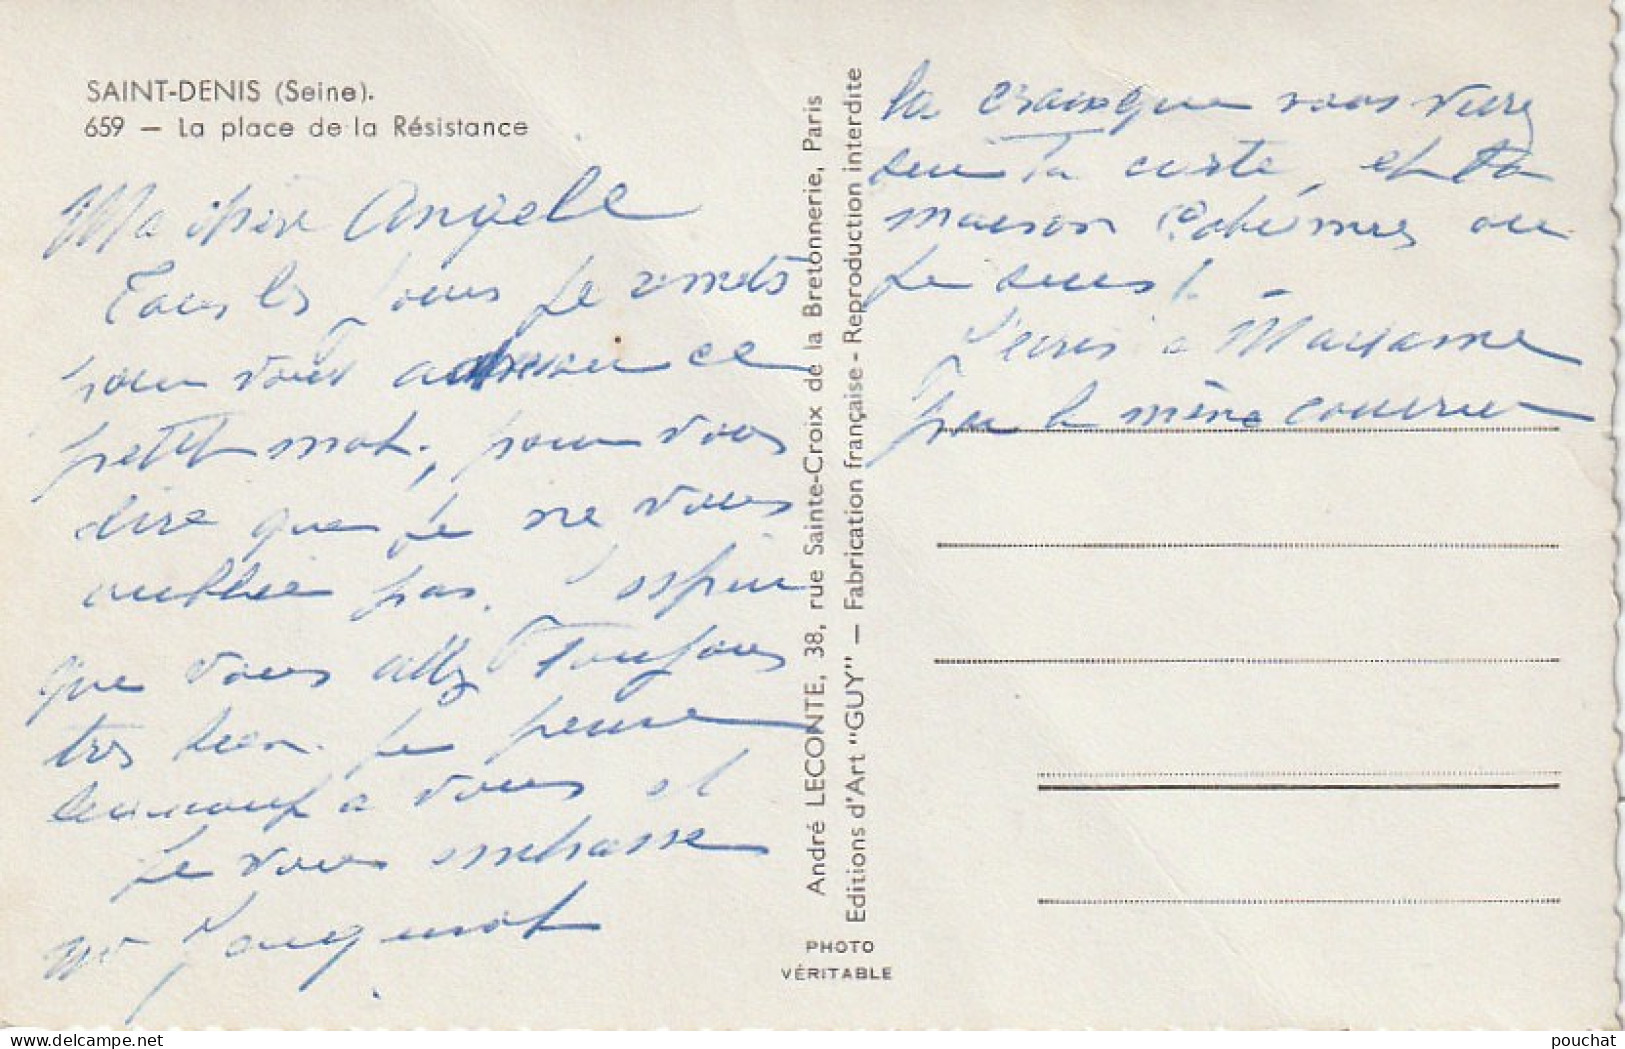 SAINT-DENIS (Seine).
659 — La place de la Résistance
Ma chère Angele
Tous les jours je remets
pour vous adresser ce
petit mot, pour vous
dire que je ne vous
oublie pas. J'espère
que vous allez toujours
très bien. je pense
beaucoup a vous et
je vous embrasse
Mr Jacquenot
André LECONTE, 38, rue Sainte-Croix de la Bretonnerie, Paris
Editions d'Art "GUY" — Fabrication française - Reproduction interdite
PHOTO
VÉRITABLE
la croix que vous verrez
sur la carte, et la
maison ou
je suis.
J'écris a Madame
par le même courrier
pouchat
delcampe.net